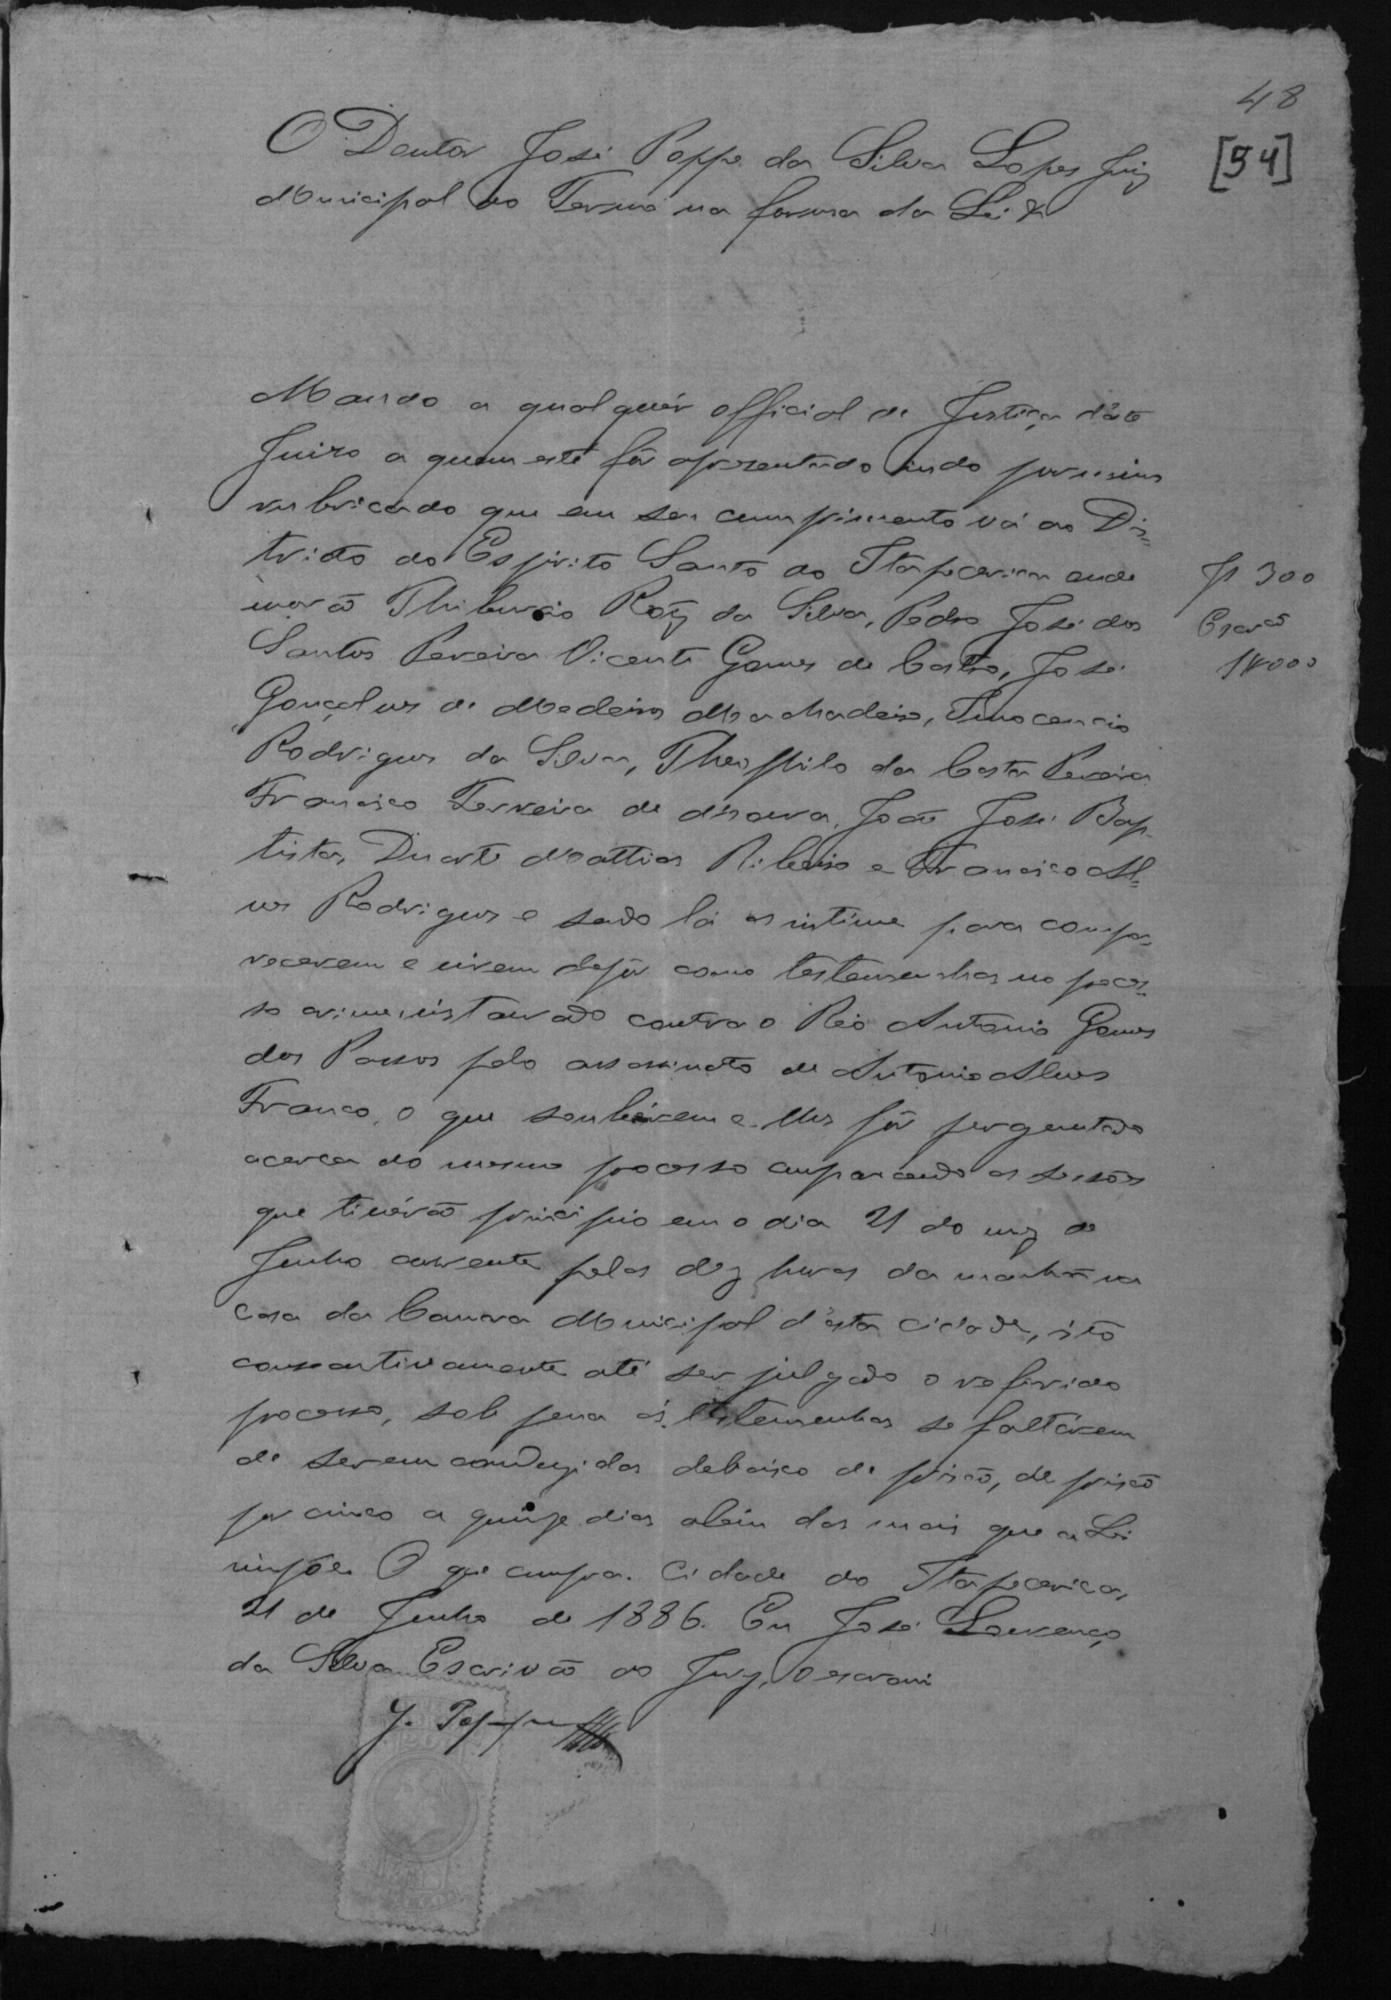 48
[54]
O Doutor José Poppe da Silva Lopes Juiz
Municipal do Termo na forma da Lei &
Mando a qualquér official de Justiça d'este
Juizo a quem este fôr aprezentado indo por mim
rubricado que em seu cumprimento vá ao Dis=
tricto do Espirito Santo do Itapecerica onde
morão Thiburcio Roiz da Silva, Pedro José dos
Santos Pereira Vicente Gomes de Castro, José
Gonçalves de Medeiros Machadeiro, Innocencio
Rodrigues da Silva, Theophilo da Costa Pereira
Francisco Ferreira de , João José Bap-
tista, Duarte Mattias Ribeiro e Francisco Al=
ves Rodrigues e sendo lá os intime para compa-
recerem e virem depôr como testemunhas no proces-
so crime instaurado contra o Réo Antonio Gomes
dos Passos pelo assassinato de Antonio Alves
Franco, o que soubérem e lhes fôr perguntado
acerca do mesmo processo comparecendo as sessões
que tivérão principio em o dia 21 do mez de
Junho corrente pelas dez horas da manhã na
casa da Camara Municipal d'esta cidade, isto
consecutivamente até ser julgado o referido
processo, sob pena ás testemunhas se faltárem
de serem conduzidas debaixo de prisão, de prisão
por cinco a quinze dias além das mais que a Lei
impõe. O que cumpra. Cidade do Itapecerica,
21 de Junho de 1886. Eu José Lourenço
da Silva Escrivão do Jury, o escrevi
J. Poppe
300
Escrão
1#000